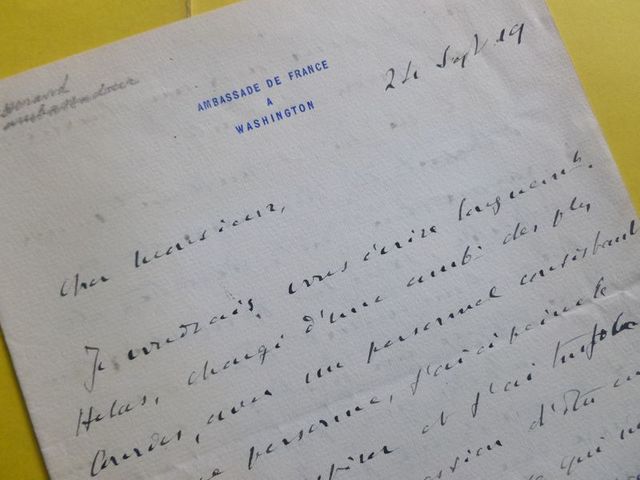 ambassadeur
AMBASSADE DE FRANCE
A
WASHINGTON
24 Sept 19
Cher Monsieur,
Je voudrais vous écrire longuement.
Helas, chargé d'une amb. des plus
lourdes, avec un personnel consistant
personne, j'ai à peine le
et j'ai
d'été
qui